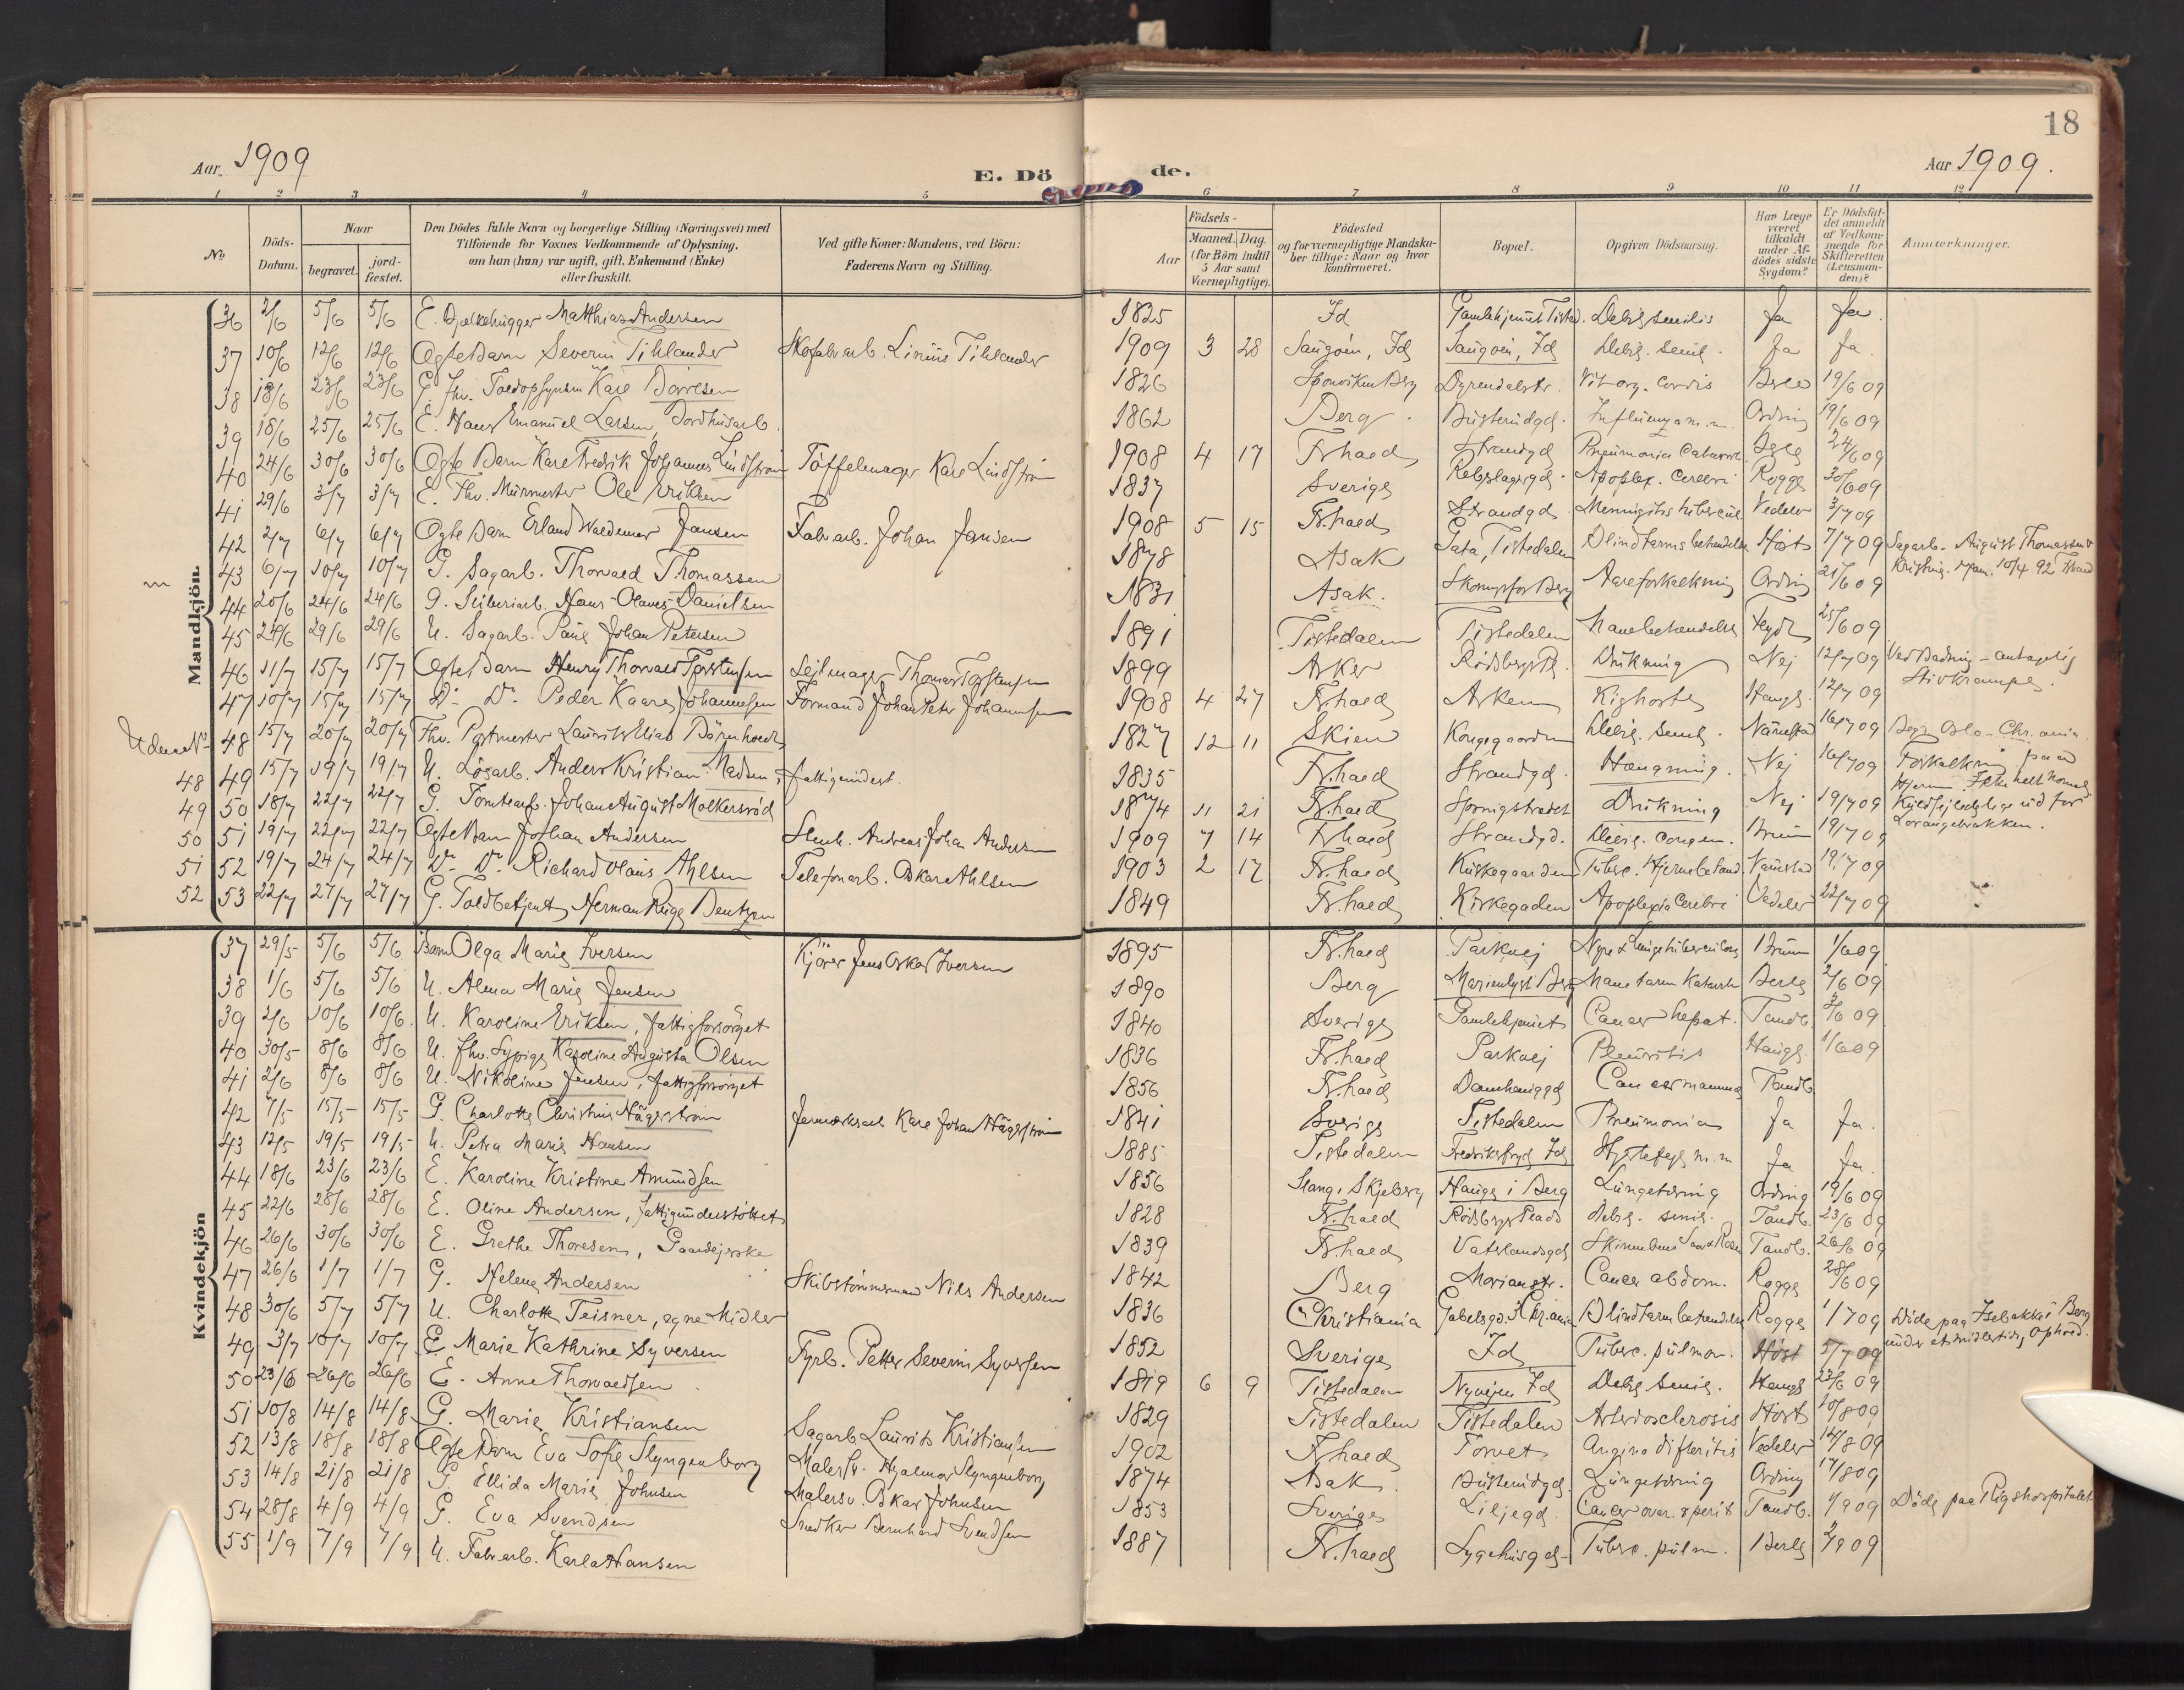 18
Aar 1909
E. Dö
de.
Aar 1909.
1 2 3 4 5 6 7 8 9 10 11 12
No
Döds-Datum.
Naar
begravet.
jord-fæstet.
Den Dödes fulde Navn og borgerlige Stilling (Næringsvei) med
Tilföiende for Voxnes Vedkommende af Oplysning,
om han (hun) var ugift, gift, Enkemand (Enke)
eller fraskilt.
Ved gifte Koner: Mandens, ved Börn:
Faderens Navn og Stilling.
Födsels-
Aar
Maaned. Dag.
(for Börn indtil
5 Aar samt
Værnepligtige).
Födested
og for værnepligtige Mandska-
ber tillige: Naar og hvor
konfirmeret.
Bopæl.
Opgiven Dödsaarsag.
Har Læge
været
tilkaldt
under Af-
dödes sidste
Sygdom?
Er Dödsfal-
det anmeldt
af Vedkom-
mende for
Skifteretten
(Lensman-
den)?
Anmærkninger.
Mandkjön.
36 2/6 5/6 5/6 E. Bjelkehugger Matthias Andersen 1825 Id Gamlehjemmet Tisted. Debil. senilis Ja Ja.
37 10/6 12/6 12/6 Ægte Barn Severin Tihlander Skofabarb. Linius Tihlander 1909 3 28 Saugøen, Id Saugøen, Id Debil. senil. Ja Ja
38 18/6 23/6 23/6 G. fhv. Toldopsynsm Karl Dorresen 1826 Sponviken Berg Dyrendalstr. Vit. org. cordis 19/6 09
39 18/6 25/6 25/6 E. Hans Emanuel Larsen, Bordhusarb. 1862 Berg. Busterudgd. Influenza m.m. Ording 19/6 09
40 24/6 30/6 30/6 Ægte Barn Karl Fredrik Johannes Lindström Töffelmager Karl Lindström 1908 4 17 Fr.hald Strandgd Pneumonia Catarrh. 24/6 09
41 29/6 3/7 3/7 E. Fhv. Murmester Ole Eriksen 1837 Sverige Rebslagergd. Apoplex. cerebri Rogge 30/6 09
42 2/7 6/7 6/7 Ægte Barn Erland Waldemar Jansen Fabarb. Johan Jansen 1908 5 15 Fr.hald Strandgd Meningitis tubercul. Vedeler 3/7 09
43 6/7 10/7 10/7 G. Sagarb. Thorvald Thomassen 1878 Asak Gata, Tistedalen Blindtarmsbetændelse Höst 7/7 09 Sagarb. August Thomassen
44 20/6 24/6 24/6 G. Sliberiarb. Hans Olaves Danielsen 1831 Asak. Skonningfos Berg Aareforkalkning Ording 21/6 09
45 24/6 29/6 29/6 U. Sagarb. Paul Johan Petersen 1891 Tistedalen Tistedalen Mavebetændelse 25/6 09
46 11/7 15/7 15/7 Ægte Barn Henry Thorvald Torstensen Sejlmager Thomas Torstensen 1899 Aker Rødsbergs Pl. Drukning Nej 12/7 09 Ved Badning - antagelig
Stivkrampe.
47 10/7 15/7 15/7 Do Do Peder Kaare Johannesen Formand Johan Peter Johannesen 1908 4 27 Fr.hald Asken Kighoste Haugl. 12/7 09
Uden No 48 15/7 20/7 20/7 Fhv. Postmester Laurits Elias Börnholdt 1827 12 11 Skien Kongegaarden Debil. senil. Nannestad 16/7 09 Begr. Oslo - Chr.ania.
48 49 15/7 19/7 19/7 U. Lösarb. Anders Kristian Madsen, fattigunderst. 1835 Fr.hald Strandgd. Hængning. Nej 16/7 09
49 50 18/7 22/7 22/7 G. Tomtearb. Johan August Molkersröd 1874 11 21 Fr.hald Spornigstrædet Drukning Nej 19/7 09
50 51 19/7 22/7 22/7 Ægte Barn Johan Andersen Stenh. Andreas Johan Andersen 1909 7 14 Fr.hald Strandgd. Debil. congen. Bruun 19/7 09
51 52 19/7 24/7 24/7 Do Do Richard Olaus Ahlsen Telefonarb. Oskar Ahlsen 1903 2 17 Fr.hald Kirkegaarden Tuberc. Hjernebetænd. Nannestad 19/7 09
52 53 22/7 27/7 27/7 G. Toldbetjent Herman Ruge Bentzen 1849 Fr.hald Kirkegaden Apoplexia Cerebri Vedeler 22/7 09
Kvindekjön
37 29/5 5/6 5/6 Barn Olga Marie Iversen Kjörer Jens Oskar Iversen 1895 Fr.hald Parkvej Nyre & Lungetuberculose Bruun 1/6 09
38 1/6 5/6 5/6 U. Alma Marie Jensen 1890 Berg Marienlyst Berg Mave tarm Katarrh 2/6 09
39 2/6 10/6 10/6. U. Karoline Eriksen, fattigforsörget 1840 Sverige Gamlehjemmet Cancer hepat. Tandb. 3/6 09
40 30/5 8/6 8/6 U. fhv. Sypige Karoline Augusta Olsen 1836 Fr.hald Parkvej Pleuritis Haugl. 1/6 09
41 2/6 8/6 8/6 U. Nikoline Jensen, fattigforsörget 1856 Fr.hald Damhauggd Cancer mammae Tandb.
42 7/5 15/5 15/5 G. Charlotte Christine Hägerström Jernverksarb. Karl Johan Hägerström 1841 Sverige Tistedalen Pneumonia Ja Ja.
43 12/5 19/5 19/5 U. Petra Marie Hansen 1885 Tistedalen Fredriksfryd Id Hoftesyge m.m Ja Ja.
44 18/6 23/6 23/6 E. Karoline Kristine Amundsen 1856 Stang, Skjeberg Hauge i Berg Lungetæring Ording 19/6 09
45 22/6 28/6 28/6 E. Oline Andersen, fattigunderstöttet 1828 Fr.hald Rödsbergs Plads Debil. senil. Tandb. 23/6 09
46 26/6 30/6 30/6 E. Grethe Thoresen, Gaardejerske 1839 Fr.hald Vaterlandsgd Tandb. 26/6 09
47 26/6 1/7 1/7 G. Helene Andersen Skibstömmermand Nils Andersen 1842 Berg Marianstr. Cancer abdom. Rogge 28/6 09
48 30/6 5/7 5/7 U. Charlotte Teisner, egne Midler 1836 Christiania Gabelsgd. Kr.ania Blindtarmbetændelse Rogge 1/7 09 Döde paa Isebakke i Berg
under et midlertidig Ophold.
49 3/7 10/7 10/7 E. Marie Kathrine Syversen Fyrb. Petter Severin Syversen 1852 Sverige Id Tuberc. pulmon. Höst 5/7 09
50 23/6 26/6 26/6 E. Anne Thorvaldsen 1819 6 9 Tistedalen Nyvejen Id Debil. senil. Haugl 23/6 09
51 10/8 14/8 14/8 G. Marie Kristiansen Sagarb. Laurits Kristiansen 1829 Tistedalen Tistedalen Arteriosclerosis Höst 10/8 09
52 13/8 18/8 18/8 Ægte Barn Eva Sofie Slyngenborg Malersv. Hjalmar Slyngenborg 1902 Fr.hald Torvet Angina difteritis Vedeler 14/8 09
53 14/8 21/8 21/8 G. Ellida Marie Johnsen Malersv. Oskar Johnsen 1874 Asak. Busterudgd. Lungetæring Ording 17/8 09
54 28/8 4/9 4/9 G. Eva Svendsen Snedker Bernhard Svendsen 1853 Sverige Liljegd. Cancer ovar. & perit. Tandb. 1/9 09 Döde paa Rigshospitalet.
55 1/9 7/9 7/9 U. Fabarb. Karla Hansen 1887 Fr.hald Sygehusgd. Tuberc. pulm. 2/9 09